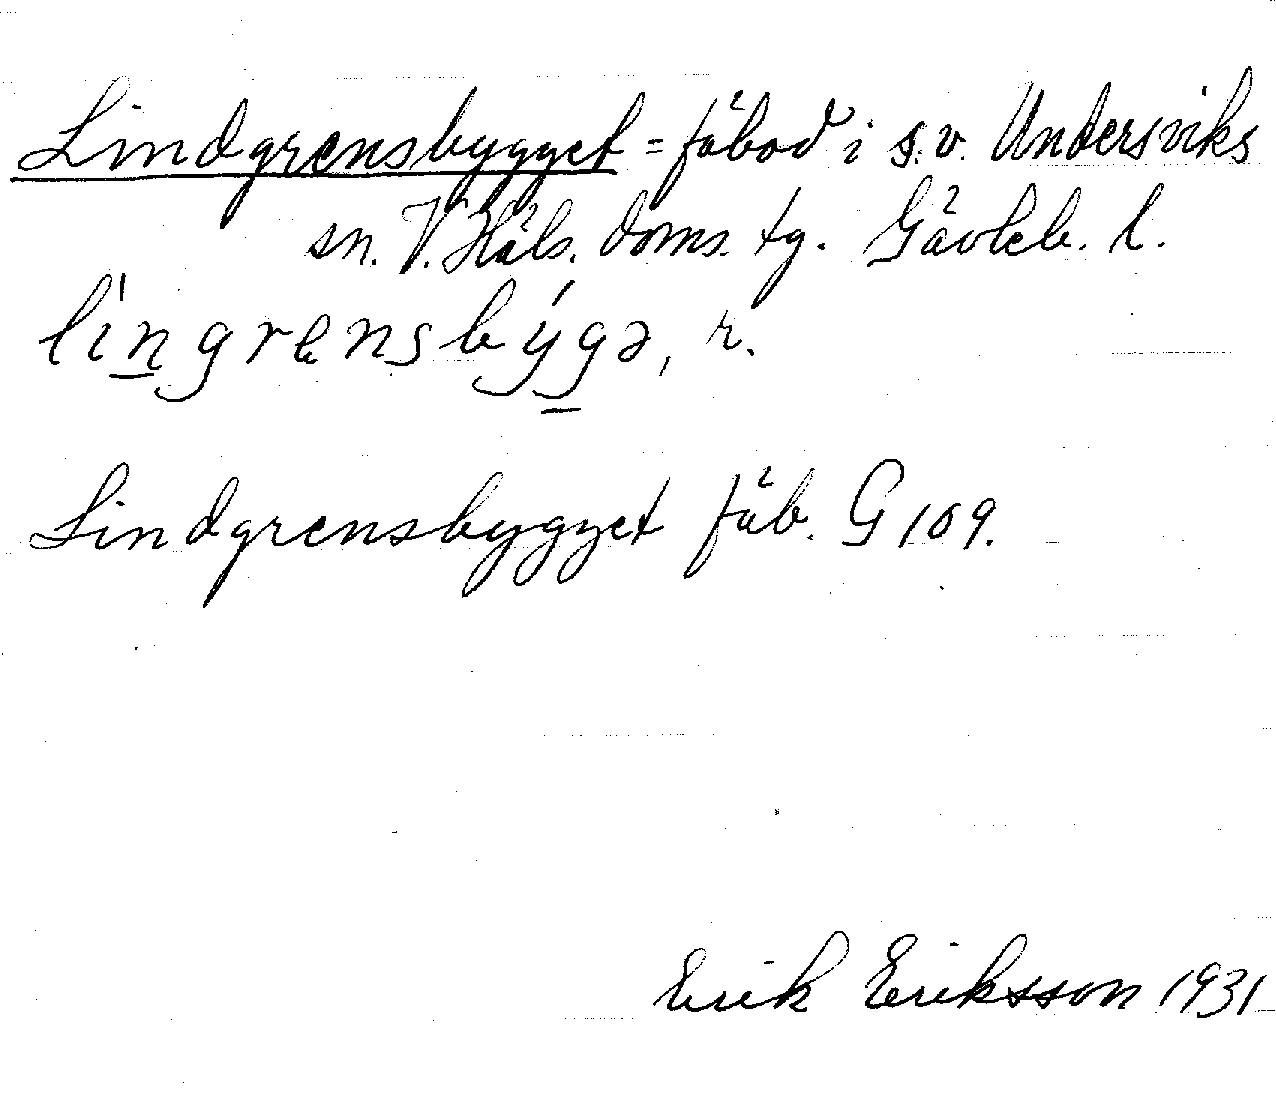 Lindgrensbygget = fäbod i s.v. Undersviks
sn. V. Häls. doms. tg. Gävleb. l.
lìn̠grensbýg̠ə, n.
Lindgrensbygget fäb. G 109.
Erik Eriksson 1931